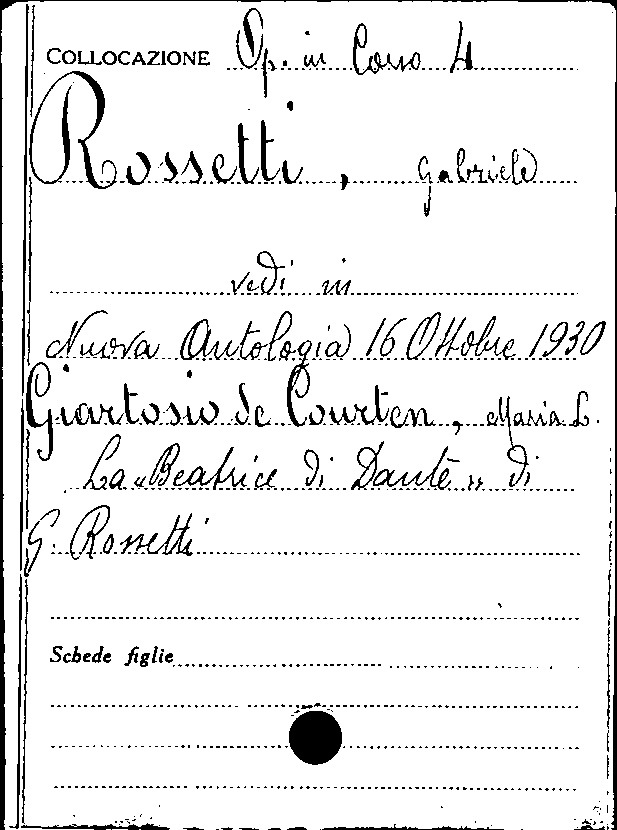 COLLOCAZIONE Op. in Corso 4
Rossetti, Gabriele
vedi in
Nuova Antologia 16 Ottobre 1930
Giartosio de Courten, Maria L.
La "Beatrice di Dante" di
G. Rossetti
Schede figlie